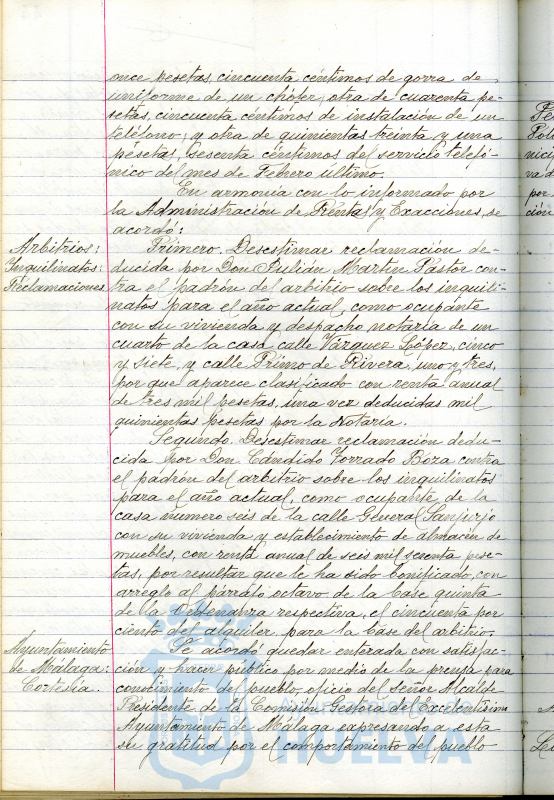 once pesetas, cincuenta céntimos de gorra de
uniforme de un chófer; otra de cuarenta pe-
setas, cincuenta céntimos de instalación de un
teléfono; y otra de quinientas treinta y una
pesetas, sesenta céntimos del servicio telefó-
nico del mes de Febrero último.
En armonía con lo informado por
la Administración de Rentas y Exacciones, se
acordó:
Arbitrios:
Inquilinatos:
Reclamaciones
Primero. Desestimar reclamación de-
ducida por Don Julián Martin Pastor con-
tra el padrón del arbitrio sobre los inquili-
natos para el año actual, como ocupante
con su vivienda y despacho notaría de un
cuarto de la casa calle Vázquez López, cinco
y siete, y calle Primo de Rivera, uno y tres,
por que aparece clasificado con renta anual
de tres mil pesetas, una vez deducidas mil
quinientas pesetas por la Notaría.
Segundo. Desestimar reclamación dedu-
cida por Don Cándido Forrado Boza contra
el padrón del arbitrio sobre los inquilinatos
para el año actual, como ocupante de la
casa número seis de la calle General Sanjurjo
con su vivienda y establecimiento de almacén de
muebles, con renta anual de seis mil sesenta pese-
tas, por resultar que le ha sido bonificado, con
arreglo al párrafo octavo de la base quinta
de la Ordenanza respectiva, el cincuenta por
ciento del alquiler para la base del arbitrio.
Ayuntamiento
de Málaga:
Cortesía.
Se acordó quedar enterada con satisfac-
ción y hacer público por medio de la prensa para
conocimiento del pueblo, oficio del Señor Alcalde
Presidente de la Comisión Gestora del Excelentísimo
Ayuntamiento de Málaga expresando a esta
su gratitud por el comportamiento del pueblo
HUELVA